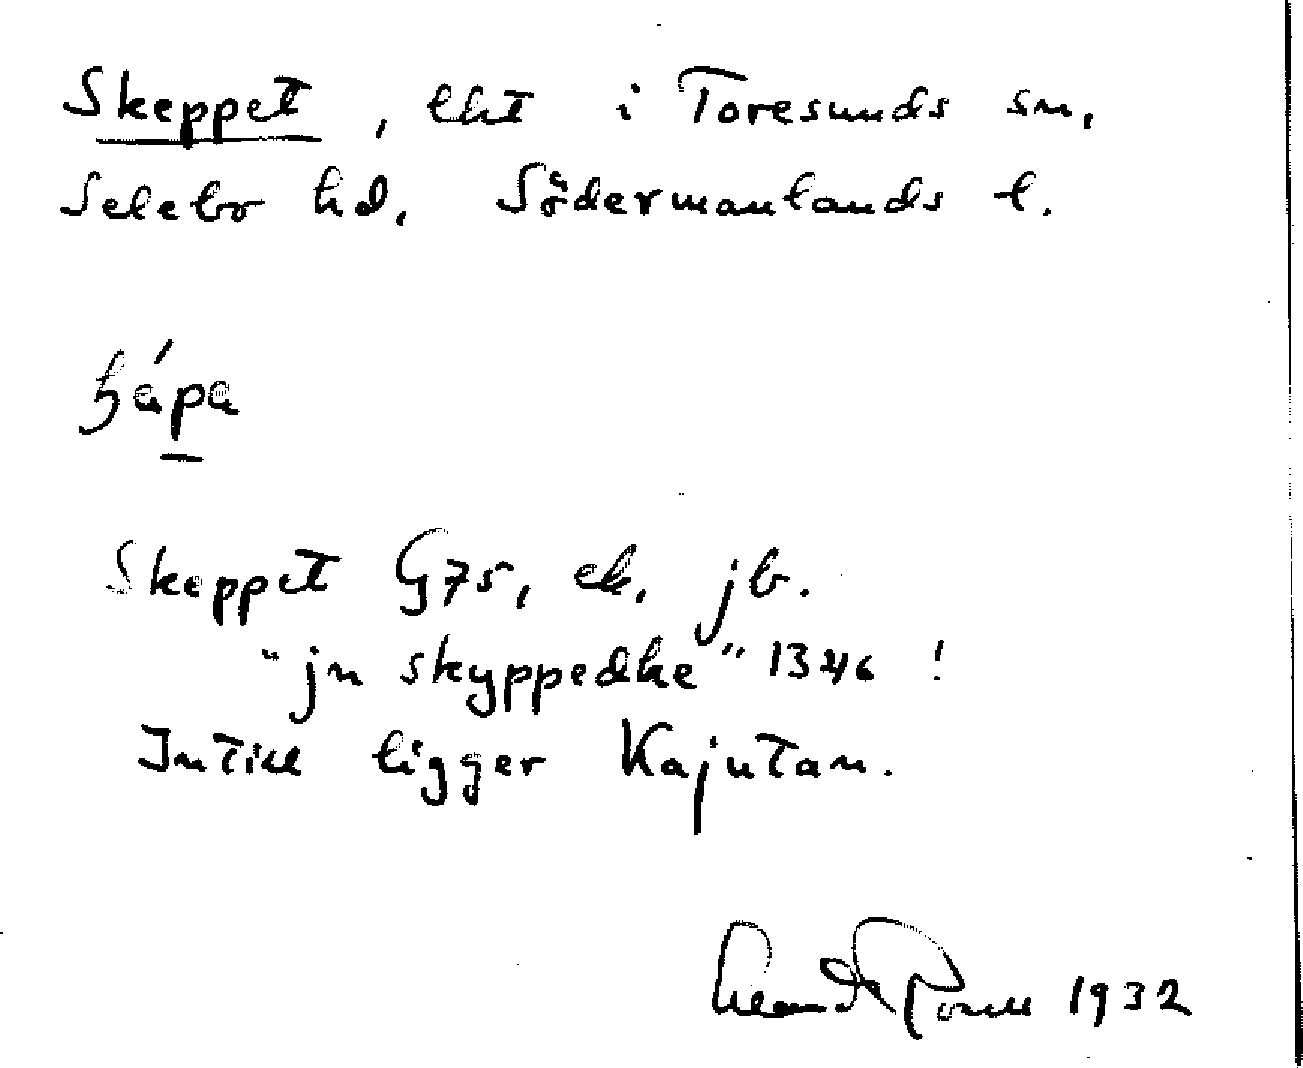 Skeppet, lht i Toresunds sn,
Selebo hd, Södermanlands l.
Skeppet G75, ek, jb.
"jn skyppedhe" 1346 !
Intill ligger Kajutan.
1932